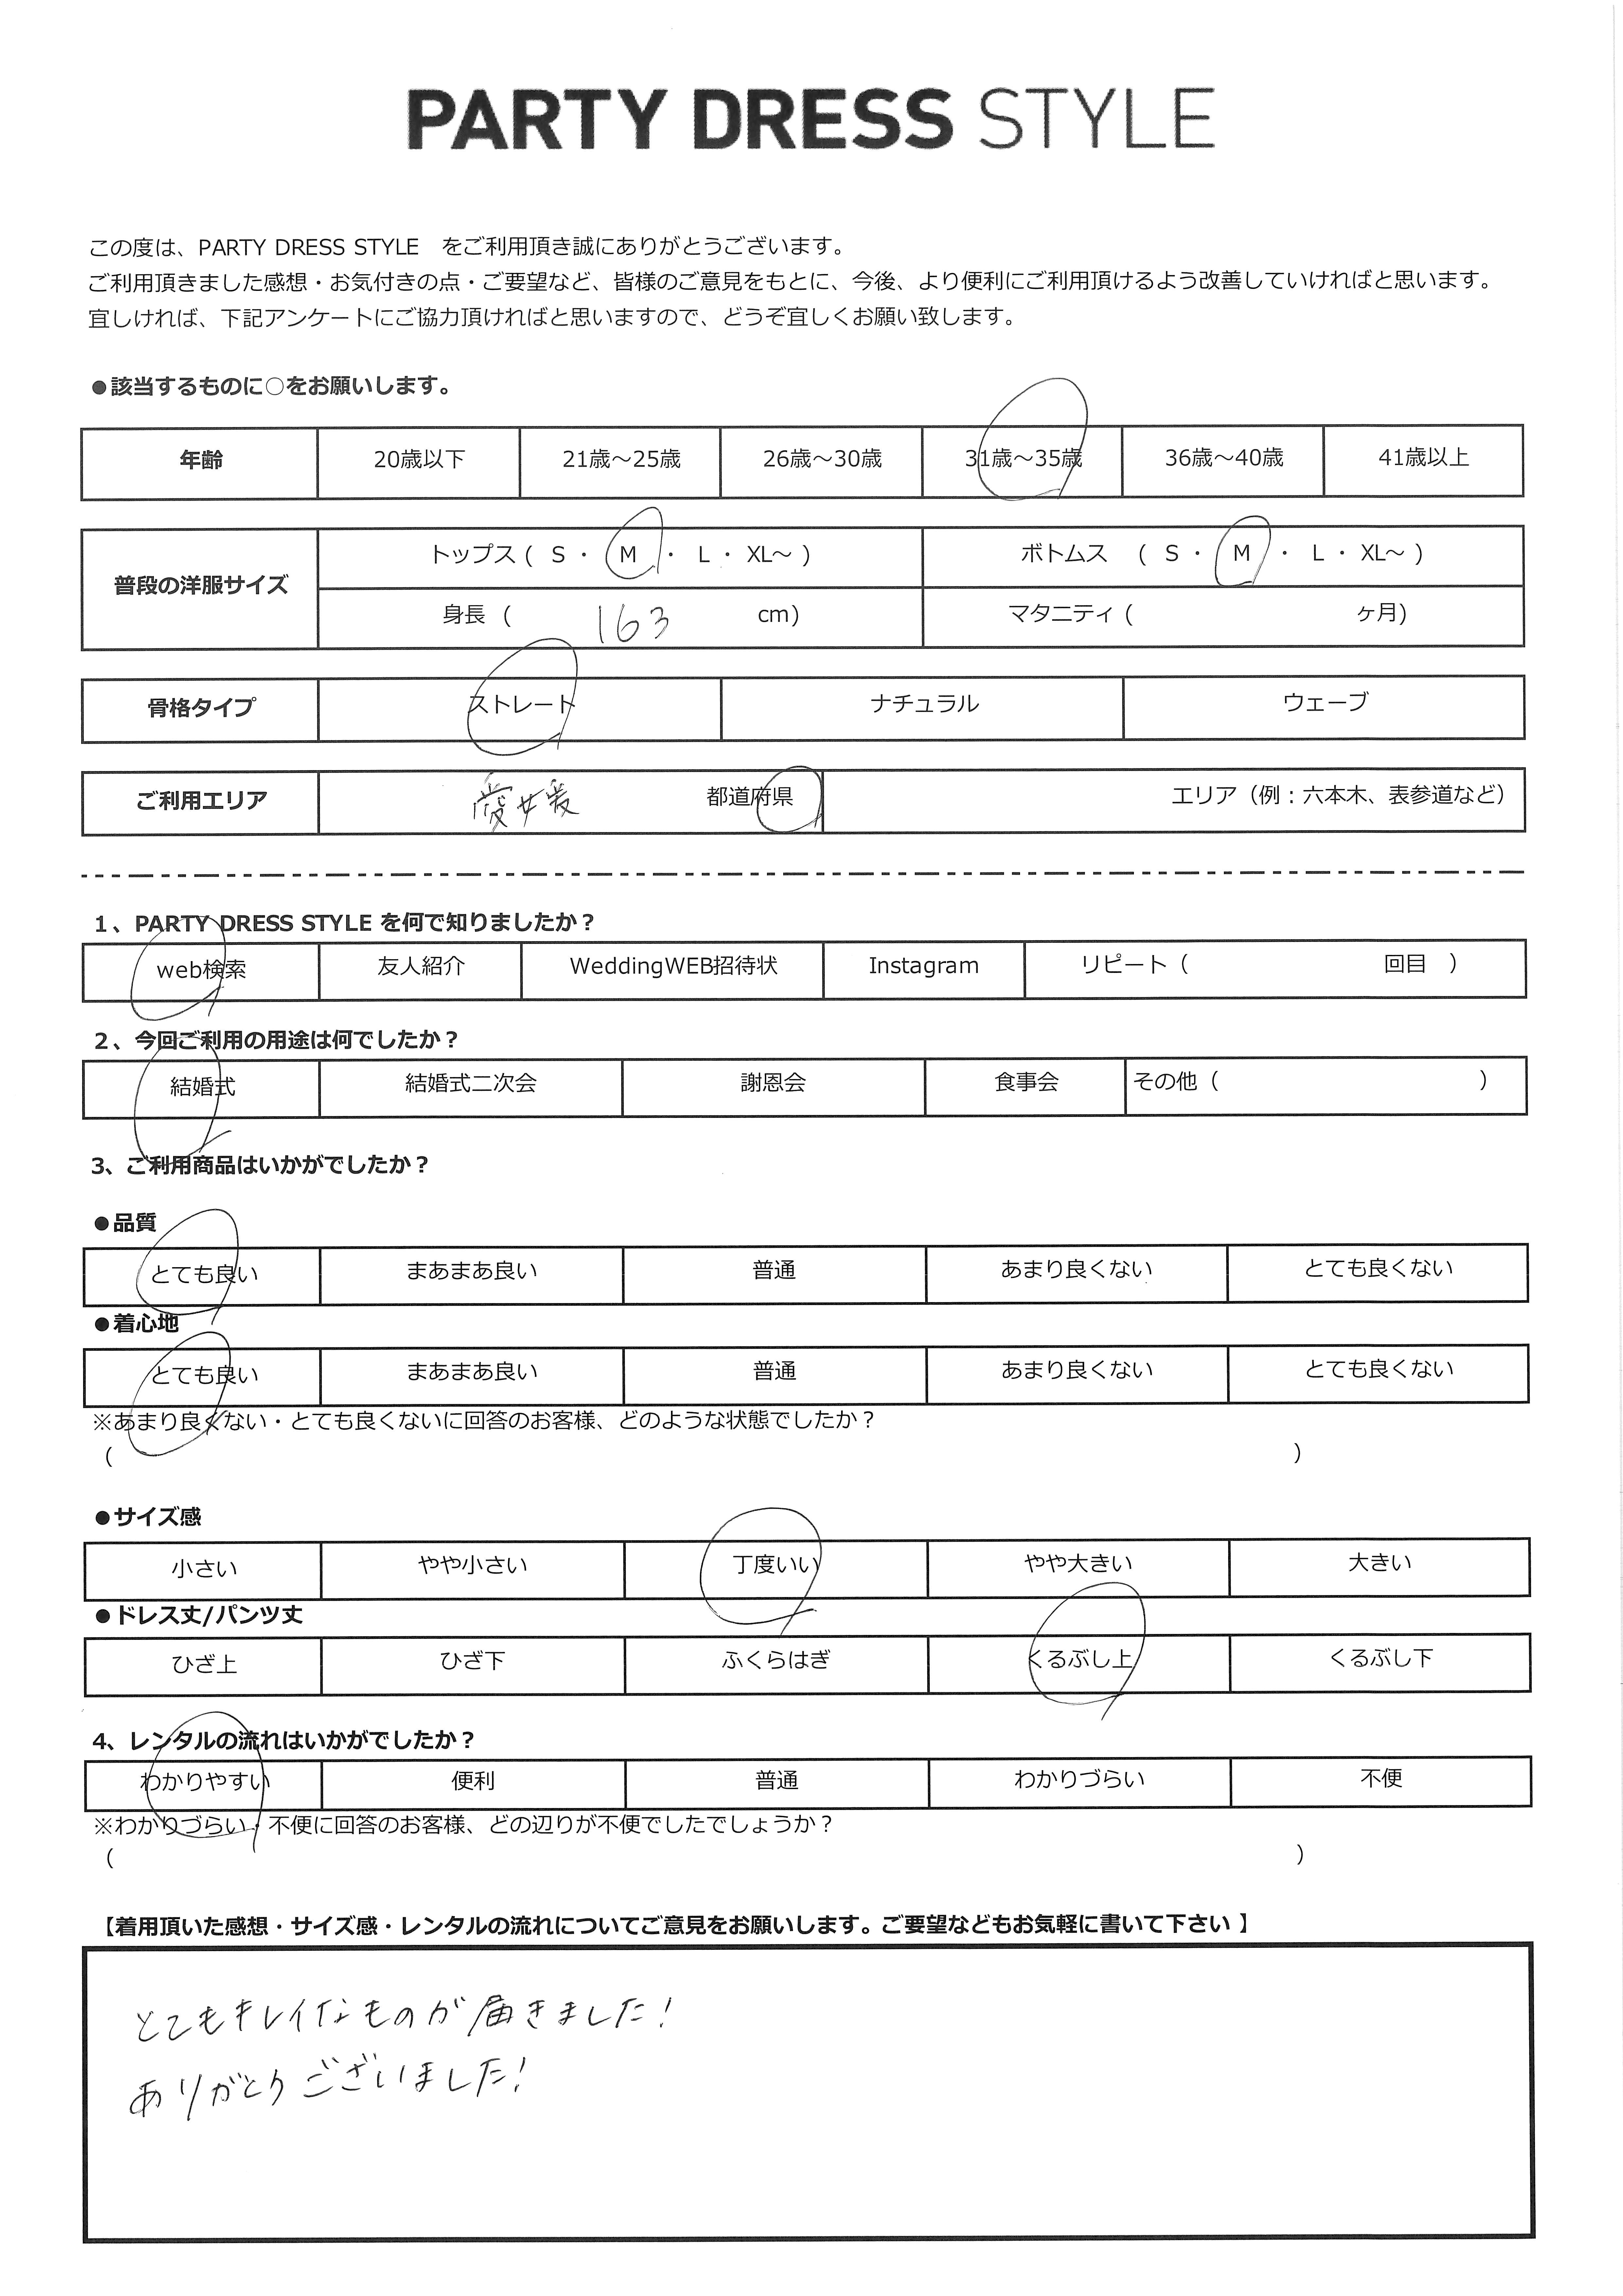 PARTY DRESS STYLE
この度は、PARTY DRESS STYLE　をご利用頂き誠にありがとうございます。
ご利用頂きました感想・お気付きの点・ご要望など、皆様のご意見をもとに、今後、より便利にご利用頂けるよう改善していければと思います。
宜しければ、下記アンケートにご協力頂ければと思いますので、どうぞ宜しくお願い致します。
●該当するものに○をお願いします。
年齢 20歳以下 21歳～25歳 26歳～30歳 31歳～35歳 36歳～40歳 41歳以上
普段の洋服サイズ トップス ( S ・ M ・ L ・ XL～ ) ボトムス ( S ・ M ・ L ・ XL～ )
身長 ( 163 cm) マタニティ ( ヶ月)
骨格タイプ ストレート ナチュラル ウェーブ
ご利用エリア 愛媛 都道府県 エリア（例：六本木、表参道など）
1、PARTY DRESS STYLE を何で知りましたか？
web検索 友人紹介 WeddingWEB招待状 Instagram リピート（ 回目 ）
2、今回ご利用の用途は何でしたか？
結婚式 結婚式二次会 謝恩会 食事会 その他（ ）
3、ご利用商品はいかがでしたか？
●品質
とても良い まあまあ良い 普通 あまり良くない とても良くない
●着心地
とても良い まあまあ良い 普通 あまり良くない とても良くない
※あまり良くない・とても良くないに回答のお客様、どのような状態でしたか？
（ ）
●サイズ感
小さい やや小さい 丁度いい やや大きい 大きい
●ドレス丈/パンツ丈
ひざ上 ひざ下 ふくらはぎ くるぶし上 くるぶし下
4、レンタルの流れはいかがでしたか？
わかりやすい 便利 普通 わかりづらい 不便
※わかりづらい・不便に回答のお客様、どの辺りが不便でしたでしょうか？
（ ）
【着用頂いた感想・サイズ感・レンタルの流れについてご意見をお願いします。ご要望などもお気軽に書いて下さい 】
とてもキレイなものが届きました！
ありがとうございました！